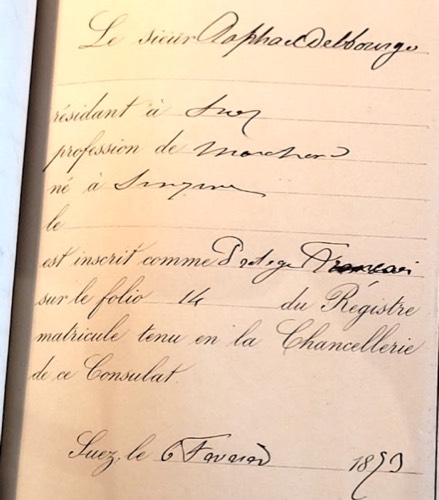 Le sieur Raphael Delbourgo
résidant à Suez
profession de Marchand
né à Smyrne
le
est inscrit comme Protégé Français
sur le folio 14 du Régistre
matricule tenu en la Chancellerie
de ce Consulat.
Suez, le 6 Février 1893